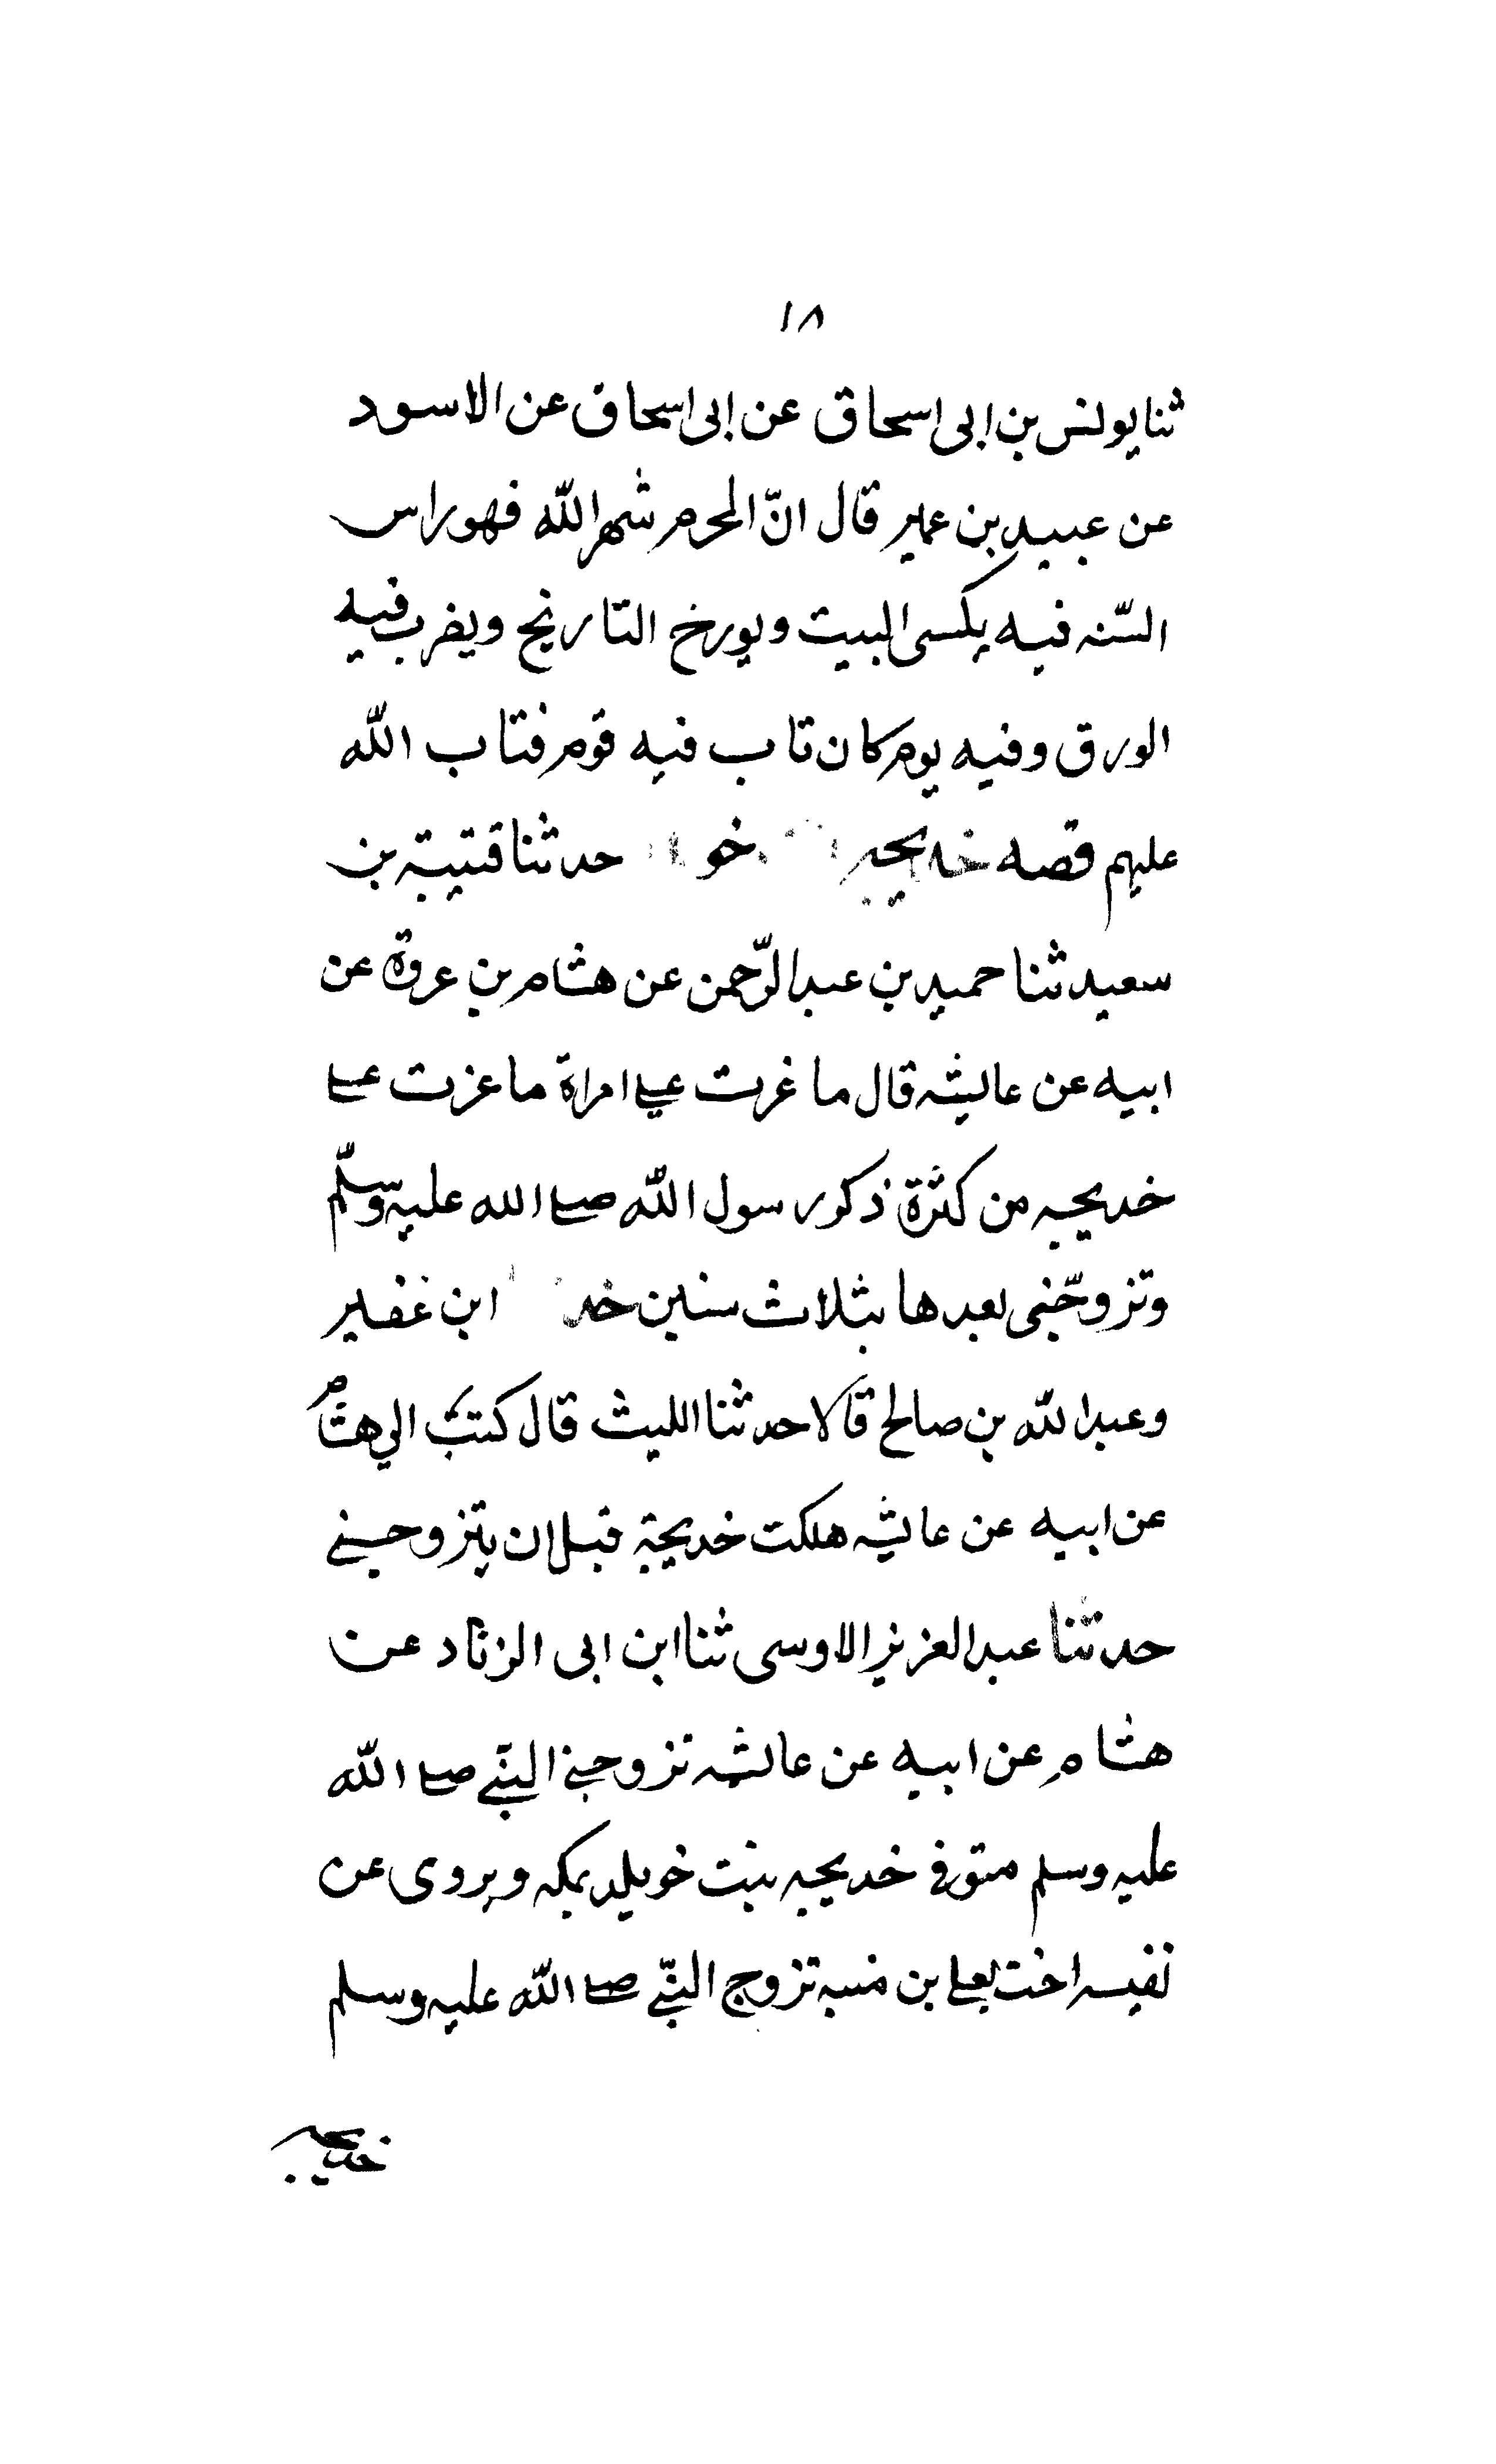 ١٨
ثنا يونس بن ابى اسحاق عن ابى اسحاق عن الاسود
عن عبيد بن عمير قال انّ المحرم شهر الله فهو راس
السّنه فيه يكسى البيت ويورخ التاريخ ويضرب فيه
الورق وفيه يوم كان تاب فيه قوم فتاب الله
عليهم قصه خديجه حدثنا قتيبة بن
سعيد ثنا حميد بن عبد الرّحمن عن هشام بن عروة عن
ابيه عن عايشه قال ما غرت علي امراة ما غرت على
خديجه من كثرة ذكر رسول الله صلى الله عليه وسلّم
وتزوّجنى بعدها بثلاث سنين ابن غفير
وعبد الله بن صالح قالا حدثنا الليث قال كتب الي هشام
عن ابيه عن عايشه هلكت خديجة قبل ان يتزوجني
حدثنا عبد العزيز الاوسى ثنا ابن ابى الزناد عن
هشام عن ابيه عن عائشه تزوجني النبّي صلى الله
عليه وسلم متوفى خديجه بنت خويلد بمكه ويروى عن
نفيسه اخت يعلى بن منبه تزوج النبّي صلى الله عليه وسلم
خديجه